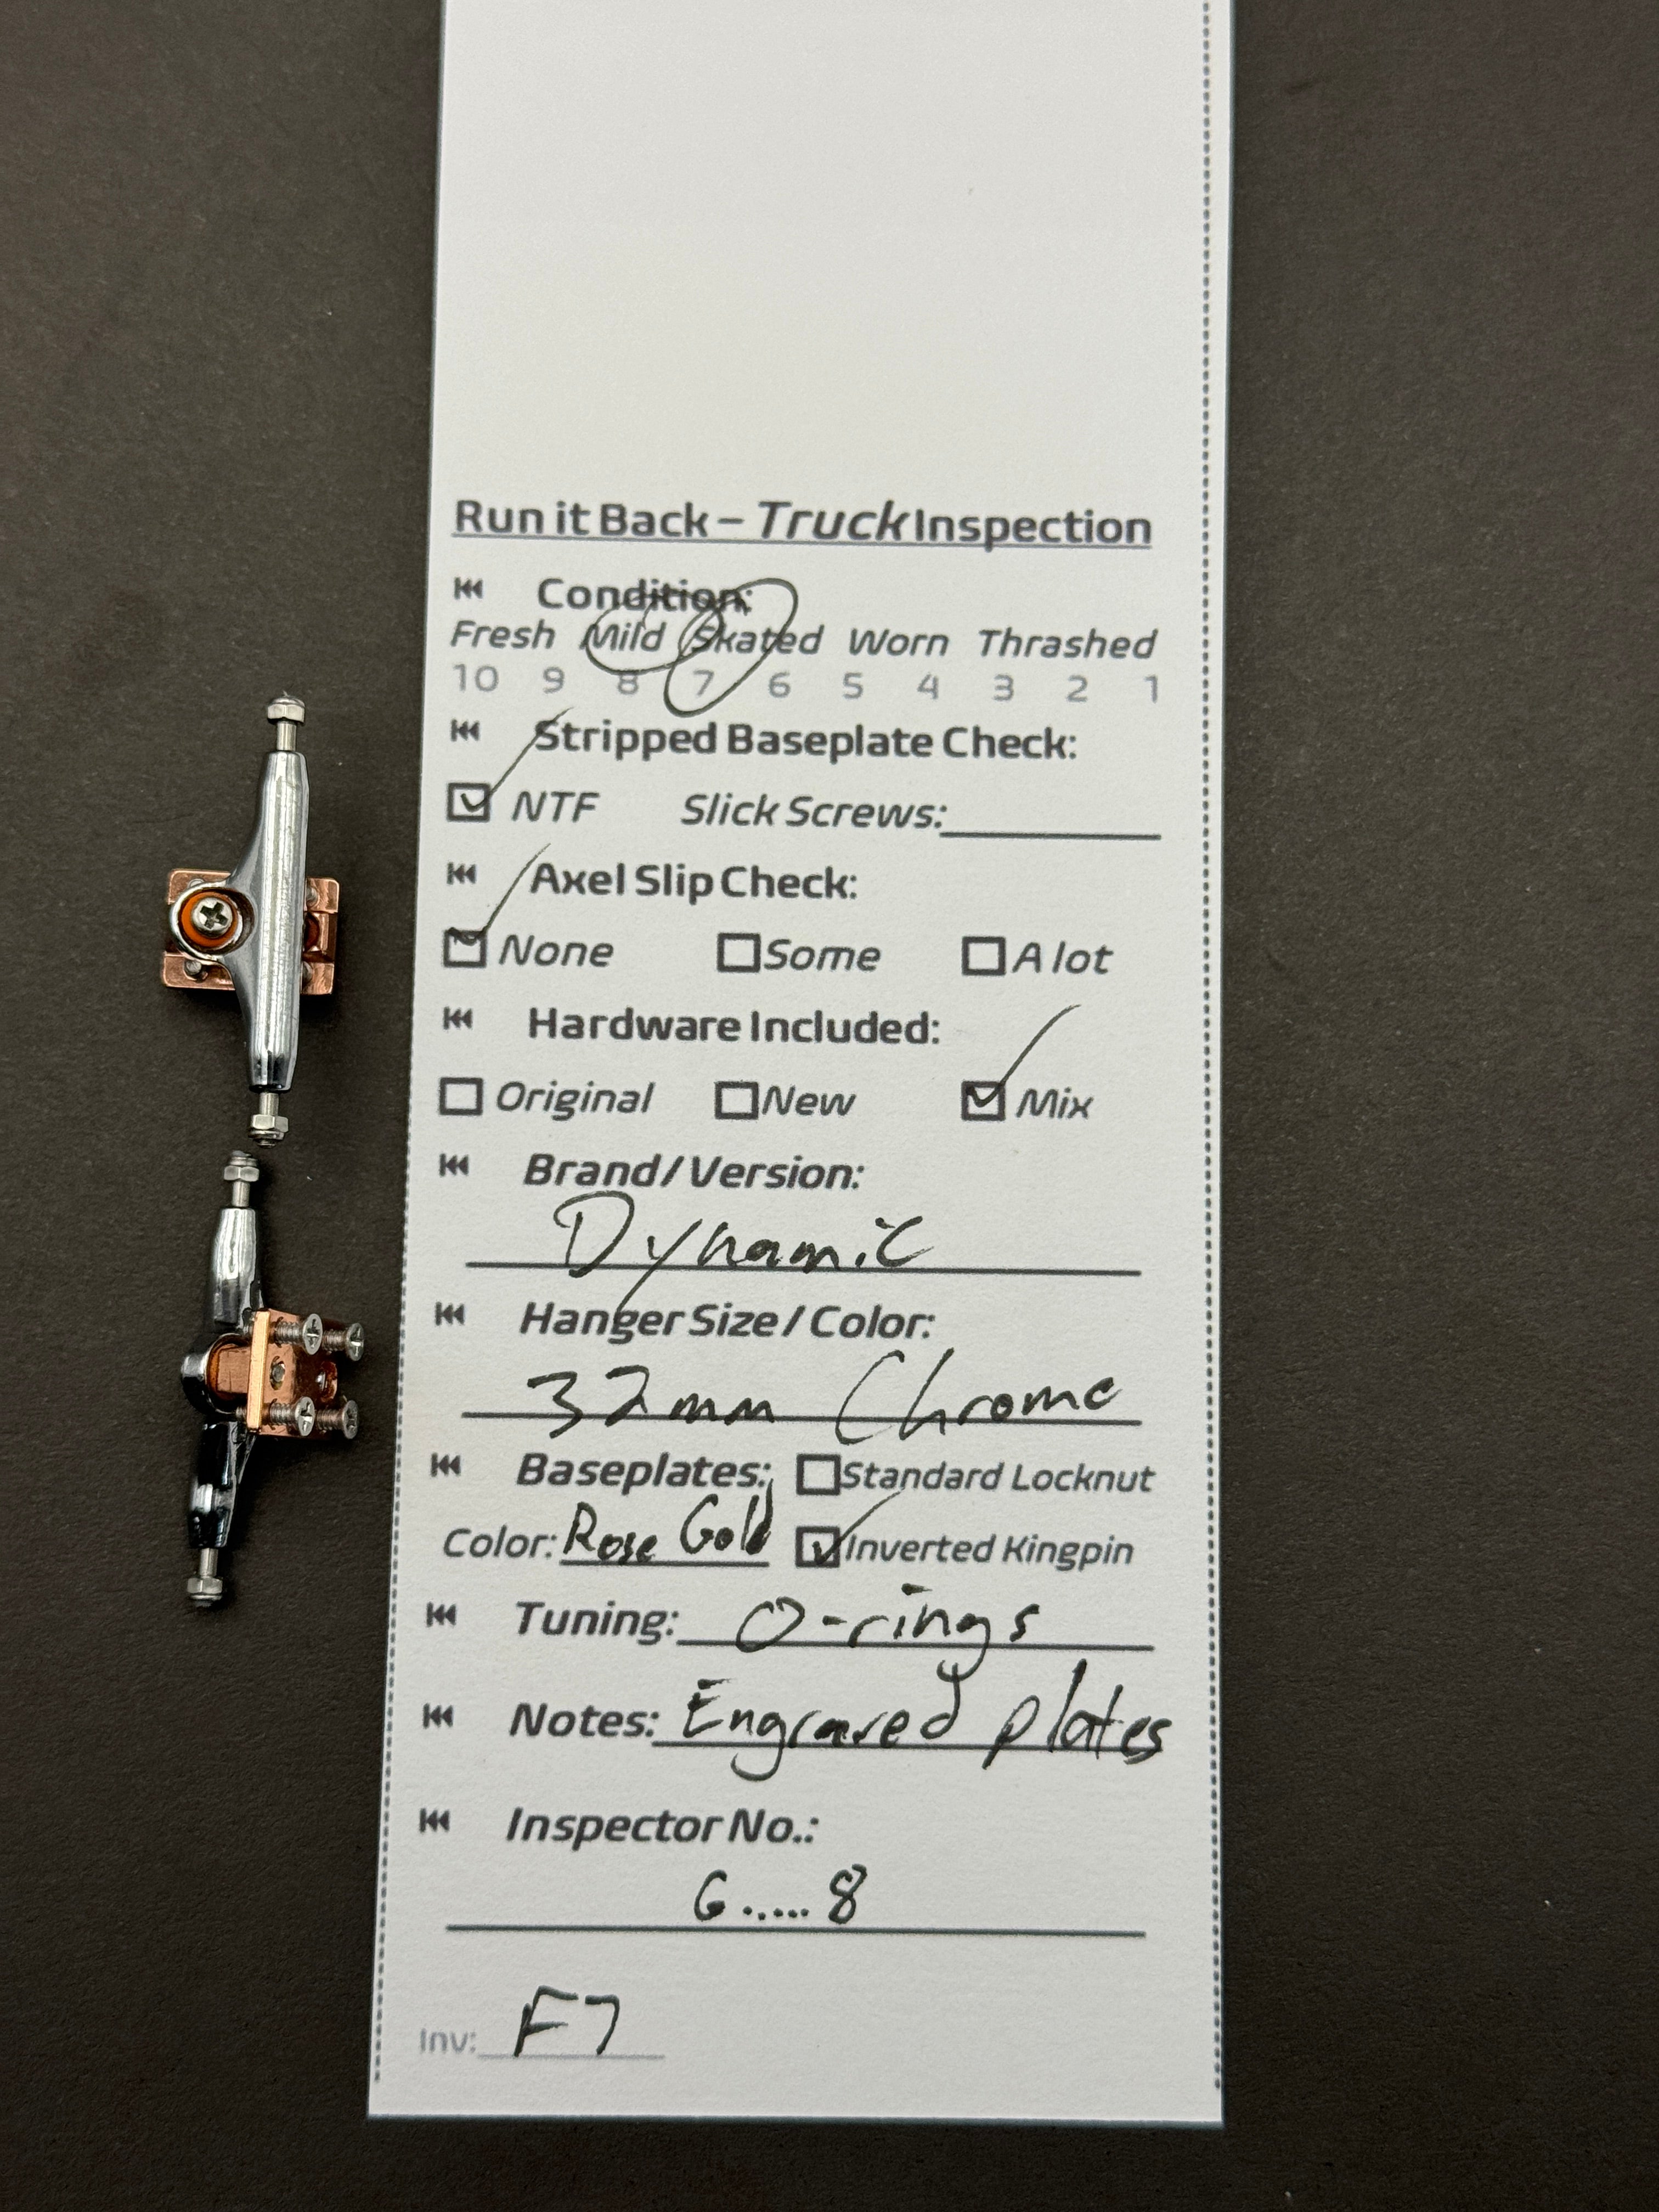 Run it Back – Truck Inspection
Condition:
Fresh Mild Skated Worn Thrashed
10 9 8 7 6 5 4 3 2 1
Stripped Baseplate Check:
NTF Slick Screws:
Axel Slip Check:
None Some A lot
Hardware Included:
Original New Mix
Brand/Version:
Dynamic
Hanger Size / Color:
32mm Chrome
Baseplates: Standard Locknut
Color: Rose Gold Inverted Kingpin
Tuning: O-rings
Notes: Engraved plates
Inspector No.:
6.....8
Inv: F7